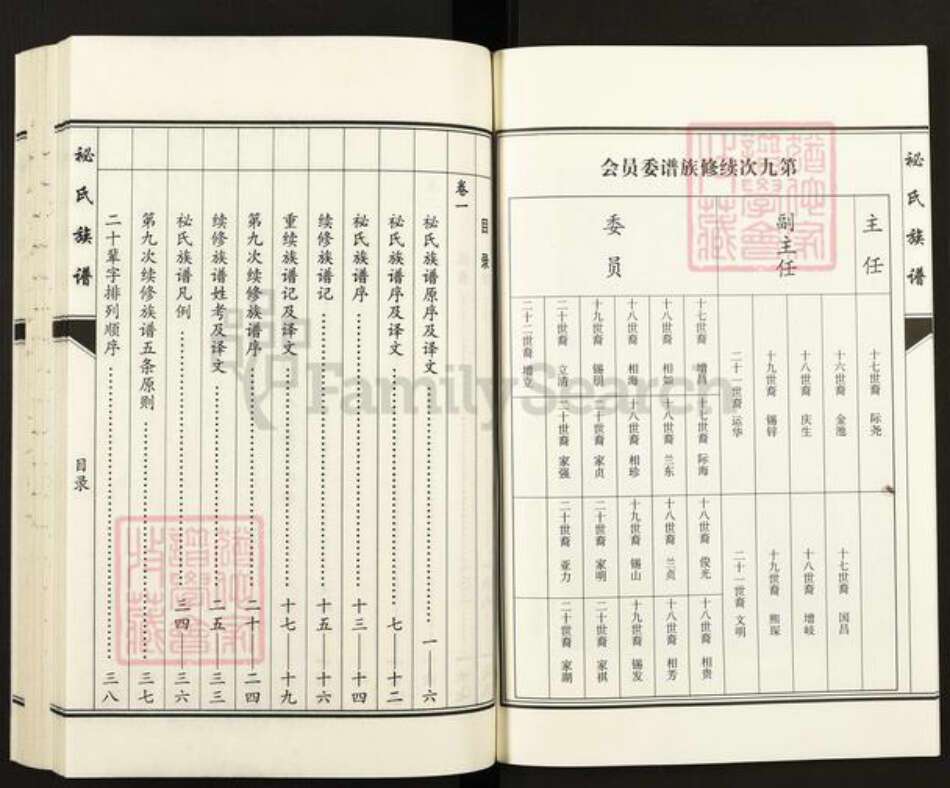 秘氏族谱
第九次续修族谱委员会
主任
十七世裔 际尧
副主任
十六世裔 金池
十七世裔 国昌
十八世裔 庆生
十八世裔 增岐
十九世裔 锡锌
十九世裔 熙琛
二十一世裔 运华
二十一世裔 文明
委员
十七世裔 增昌
十七世裔 际海
十八世裔 俊光
十八世裔 相贵
十八世裔 相如
十八世裔 兰东
十八世裔 兰贞
十八世裔 相芳
十八世裔 相海
十八世裔 相珍
十九世裔 锡山
十九世裔 锡发
十九世裔 锡朋
二十世裔 家贞
二十世裔 家明
二十世裔 家祺
二十世裔 立清
二十世裔 家强
二十世裔 亚力
二十世裔 家湖
二十二世裔 增立
目录
卷一
秘氏族谱原序及译文 一——六
秘氏族谱序及译文 七——十二
秘氏族谱序 十三——十四
续修族谱记 十五——十六
重续族谱记及译文 十七——十九
第九次续修族谱序 二十——二四
续修族谱姓考及译文 二五——三三
秘氏族谱凡例 三四——三六
第九次续修族谱五条原则 三七
二十辈字排列顺序 三八
秘氏族谱
目录
FamilySearch